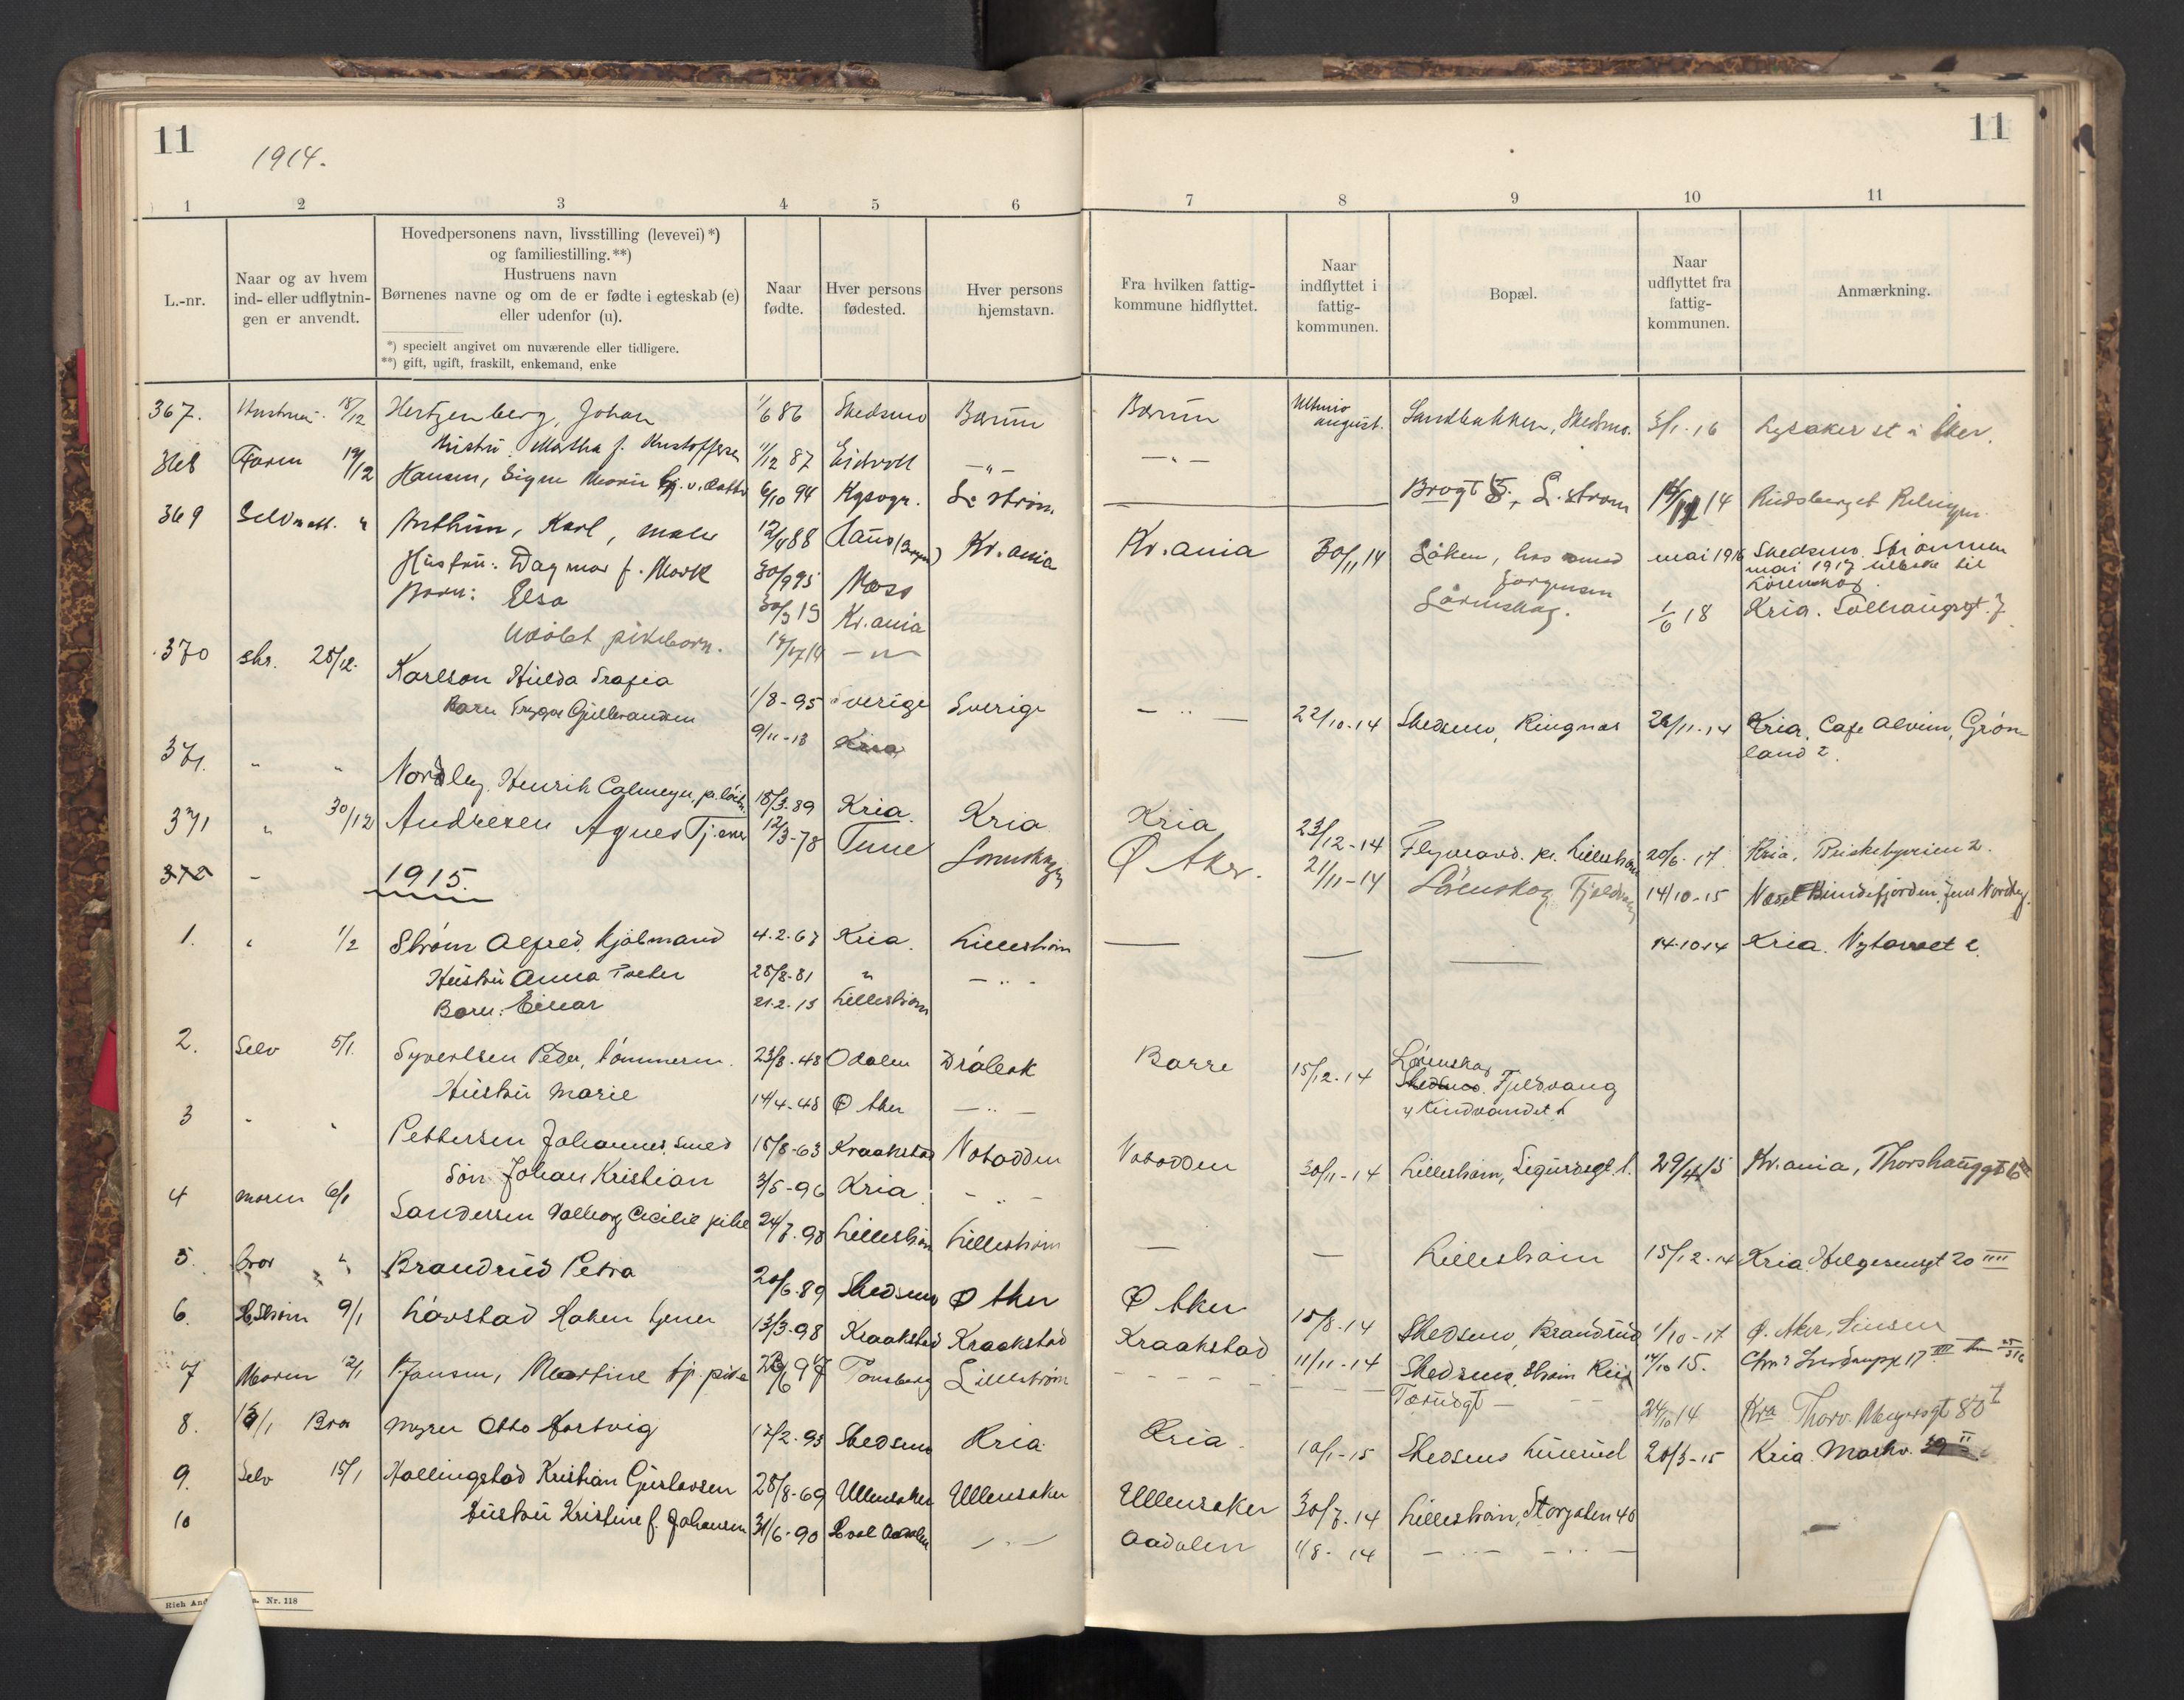 11
11
1914.
1 2 3 4 5 6 7 8 9 10 11
L.-nr.
Naar og av hvem
ind- eller udflytnin-
gen er anvendt.
Hovedpersonens navn, livsstilling (levevei) *)
og familiestilling.**)
Hustruens navn
Børnenes navne og om de er fødte i egteskab (e)
eller udenfor (u).
*) specielt angivet om nuværende eller tidligere.
**) gift, ugift, fraskilt, enkemand, enke
Naar
fødte.
Hver persons
fødested.
Hver persons
hjemstavn.
Fra hvilken fattig-
kommune hidflyttet.
Naar
indflyttet i
fattig-
kommunen.
Bopæl.
Naar
udflyttet fra
fattig-
kommunen.
Anmærkning.
367. Hustruen 18/12 Hertzenberg, Johan 1/6 86 Skedsmo Bærum Bærum Ultimo august. Sandbakken, Skedsmo. 3/1-16 Lysaker st i Aker.
Hustru Martha f. Kristoffersen 11/12 87 Eidsvoll -"- -"-
368 Faren 19/12 Hansen, Signe Marie 6/10 94 L. strøm Brogt 5, L. strøm 14 Rælingen
369 Selv " Arthum, Karl, maler 12/4 88 Kr.ania Kr.ania 30/11 14 Løken, hos smed Jørgensen mai 1916 Skedsmo. Strømmen
mai 1917 tilbake til Lørenskog.
Hustru: Dagmar f. Mork 30/9 95 Moss Lørenskog. 1/6 18 Kria.
Barn: Elsa 30/3 13 Kr.ania
Udøbt pikebarn. 14 -"-
370 skr. 28/12. Karlson Hulda Srafia 1/8-95 Sverige Sverige - " - 22/10-14 Skedsmo, Ringnes 26/11-14 Kria. Cafe Alvim, Grøn-
land 2.
Barn Trygve Gulbrandsen 9/11-13 Kria
371. " " Nordby, Henrik Calmeyer 18/3.89 Kria. Kria Kria 23/12-14 20/6-17 Kria. Briskebyveien 2.
371 " 30/12 Andresen Agnes Tj. 12/3-78 Tune Lørenskog Ø Aker. 21/11-14 Lørenskog 14/10-15 Bundefjorden, Jens Nordby.
372 - 1915.
1. " 1/2 Strøm Alfred, hjølmand 4.2.67 Kria. Lillestrøm 14-10-14 Kria. Nytorvet 2.
Hustru Anna Tveter 28/8-81 " - " -
Barn: Einar 21.2.13 Lillestrøm
2. Selv 5/1. Syvertsen Peder, tømmerm. 23/8-48 Odalen Drøbak Borre 15/12-14 Lørenskog
Skedsmo. Fjeldvang
Hustru Marie 14/4-48 Ø Aker - " -
3 " " Pettersen Johannes, smed 18/8-63 Kraakstad Notodden Notodden 30/11-14 Lillestrøm, Sigurdsgt. 1. 29/4 15 Kr.ania, Thorshauggt 6
Søn Johan Kristian 3/5-96 Kria - " -
4 moren 6/1 Sandersen Valborg Cecilie pike 24/7.98 Lillestrøm Lillestrøm Lillestrøm 15/12-14 Kria. Helgesensgt 20 IIII
5. bror " Brandrud Petra 20/6.89 Skedsmo Ø Aker Ø Aker 15/8-14 Skedsmo, Brandrud 1/10-17 Ø. Aker, Linsen
6. 9/1 Løvstad Haken 13/3-98 Kraakstad Kraakstad Kraakstad 11/11-14 Skedsmo, Strøm 15.
7 Moren 12/1 Jansen, Martine tj. pike 97 Tønsberg Lillestrøm 24/10 14 Kra Thorv. Meyersgt 80
8. 13/1 Bror Myrer Otto Hartvig 17/2-93 Skedsmo Kria Kria. 10/1-15 Skedsmo 20/3-15 Kria. Markv. 29 II
9. Selv 15/1 Hallingstad Kristian Gustavsen 28/8-69 Ullensaker Ullensaker Ullensaker 30/7.14 Lillestrøm, Storgaten 40
10 Hustru Kristine f. Johansen 31/6-90 - " - Aadalen 1/8-14 - " - - " -
Nr. 118